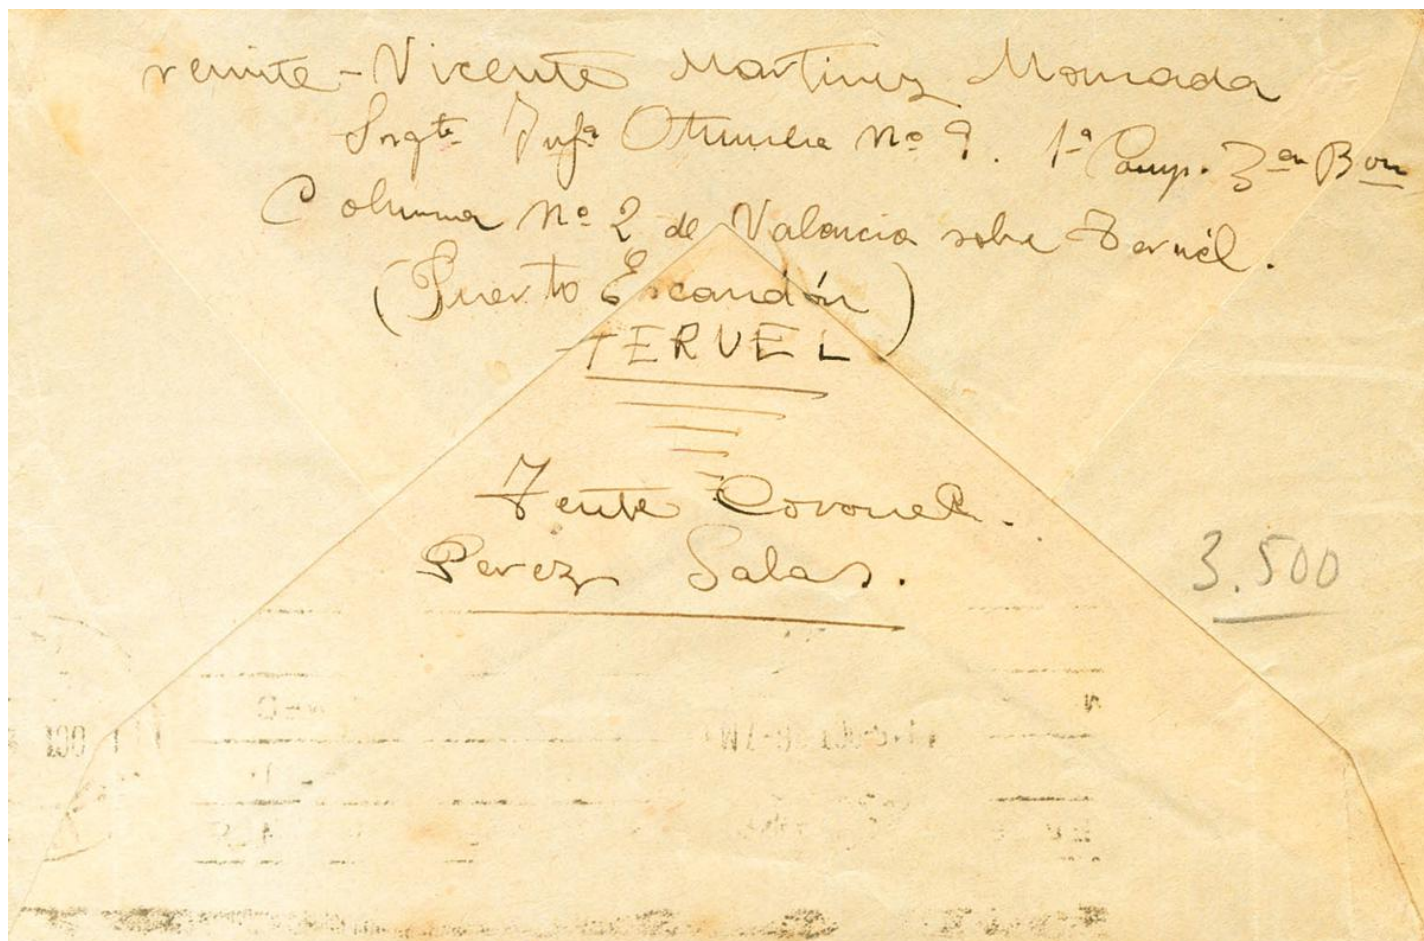 remite - Vicente Martinez Moncada
Sngte Infª Otumba Nº 9. 1ª Comp. 3er Bon
Columna Nº 2 de Valencia sobre Teruél.
(Puerto Escandón)
TERUEL
Tente Coronel.
Perez Salas.
3.500
OCT